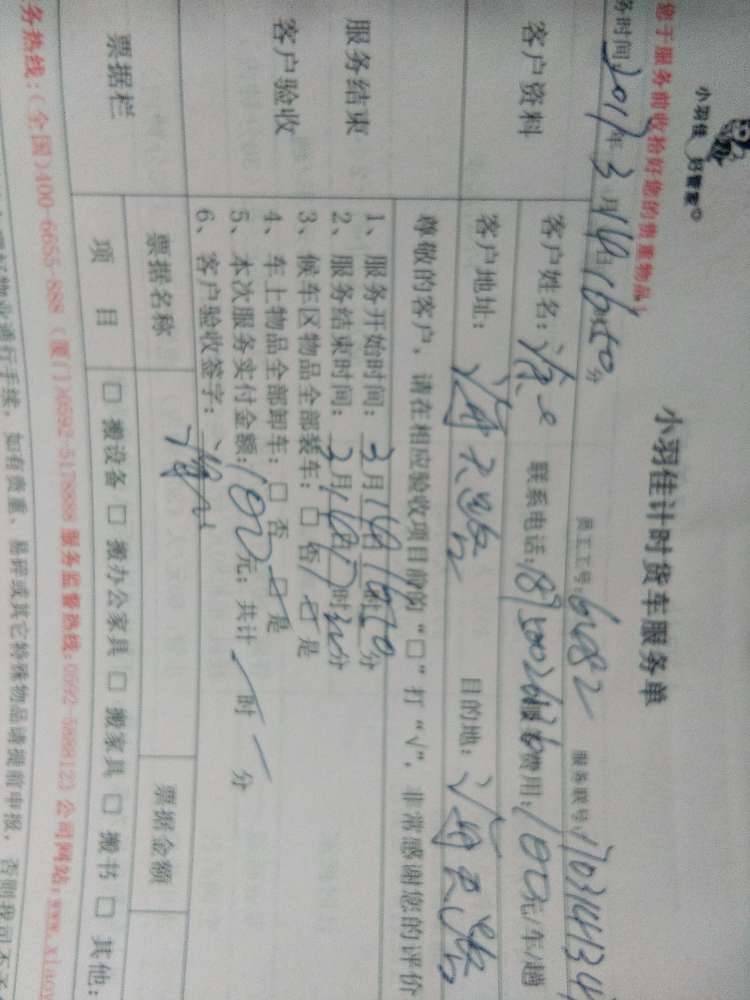 小羽佳 好管家
小羽佳计时货车服务单
您于服务前收拾好您的贵重物品！
务时间:2017年3月14日16时50分 员工工号:6482 服务联号:
客户资料
客户姓名: 联系电话: 费用:100元/车/趟
客户地址: 目的地:
尊敬的客户，请在相应验收项目前的“□”打“√”，非常感谢您的评价
服务结束
客户验收
1、服务开始时间:3月14日16时50分
2、服务结束时间:3月14日17时20分
3、候车区物品全部装车:□ 否 是
4、车上物品全部卸车:□ 否 是
5、本次服务实付金额:100元；共计 时 分
6、客户验收签字:
票据栏
票据名称 票据金额
项目 □ 搬设备 □ 搬办公家具 □ 搬家具 □ 搬书 □ 其他:
务热线:(全国)400-6655-888 (厦门)0592-5178888 服务监督热线:0592-5888123 公司网站:www.xiaoy
物业进行手续，如有贵重、易碎或其它特殊物品请提前申报，否则我司不